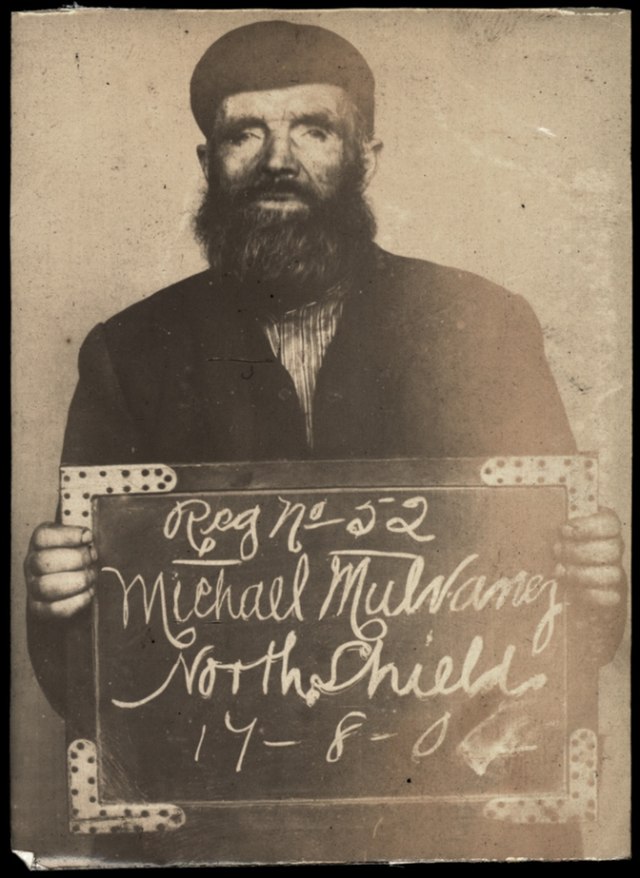 Reg No 52
Michael Mulvaney
North Shields
17-8-0